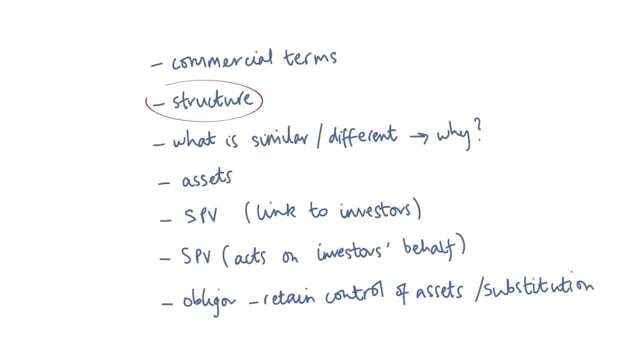 - commercial terms
- structure
- what is similar / different → why?
- assets
- SPV (link to investors)
- SPV (acts on investors' behalf)
- obligor - retain control of assets /substitution